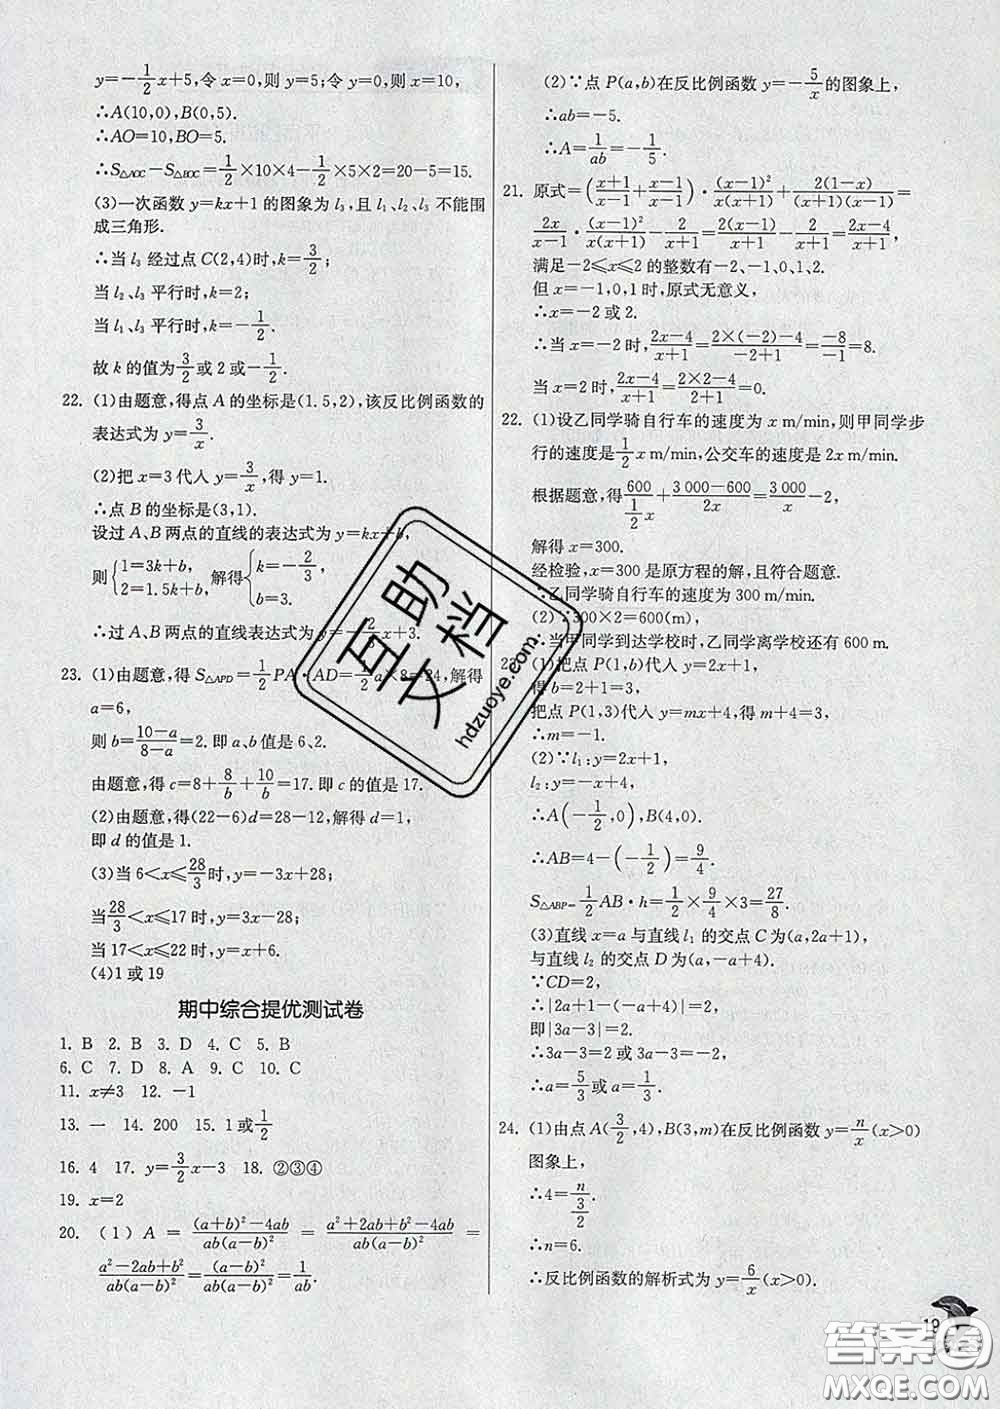 y=-1/2x+5,令x=0,则y=5;令y=0,则x=10,
∴A(10,0),B(0,5).
∴AO=10,BO=5.
∴S△AOC-S△BOC=1/2×10×4-1/2×5×2=20-5=15.
(3)一次函数y=kx+1的图象为l₃,且l₁、l₂、l₃不能围
成三角形.
∴当l₃经过点C(2,4)时,k=3/2;
当l₂、l₃平行时,k=2;
当l₁、l₃平行时,k=-1/2.
故k的值为3/2或2或-1/2.
22. (1)由题意,得点A的坐标是(1.5,2),该反比例函数的
表达式为y=3/x.
(2)把x=3代入y=3/x,得y=1.
∴点B的坐标是(3,1).
设过A、B两点的直线的表达式为y=kx+b,
则{1=3k+b, 2=1.5k+b, 解得{k=-2/3, b=3.
∴过A、B两点的直线表达式为y=-2/3x+3.
23. (1)由题意,得S△APD=1/2PA·AD=1/2a×8=24,解得
a=6,
则b=(10-a)/(8-a)=2.即a、b值是6、2.
由题意,得c=8+8/b+10/b=17.即c的值是17.
(2)由题意,得(22-6)d=28-12,解得d=1,
即d的值是1.
(3)当6<x≤28/3时,y=-3x+28;
当28/3<x≤17时,y=3x-28;
当17<x≤22时,y=x+6.
(4)1或19
期中综合提优测试卷
1. B 2. B 3. D 4. C 5. B
6. C 7. D 8. A 9. C 10. C
11. x≠3 12. -1
13. 一 14. 200 15. 1或1/2
16. 4 17. y=3/2x-3 18. ②③④
19. x=2
20. (1)A=((a+b)²-4ab)/(ab(a-b)²)=(a²+2ab+b²-4ab)/(ab(a-b)²)=
(a²-2ab+b²)/(ab(a-b)²)=(a-b)²/(ab(a-b)²)=1/ab.
(2)∵点P(a,b)在反比例函数y=-5/x的图象上,
∴ab=-5.
∴A=1/ab=-1/5.
21. 原式=((x+1)/(x-1)+(x-1)/(x-1))·(x-1)²/(x(x+1))+2(1-x)/((x+1)(x-1))=
2x/(x-1)·(x-1)²/(x(x+1))-2/(x+1)=2(x-1)/(x+1)-2/(x+1)=(2x-4)/(x+1),
满足-2≤x≤2的整数有-2、-1、0、1、2.
但x=-1,0,1时,原式无意义,
∴x=-2或2.
∴当x=-2时,(2x-4)/(x+1)=(2×(-2)-4)/(-2+1)=-8/-1=8.
当x=2时,(2x-4)/(x+1)=(2×2-4)/(2+1)=0.
22. (1)设乙同学骑自行车的速度为x m/min,则甲同学步
行的速度是1/2x m/min,公交车的速度是2x m/min.
根据题意,得600/(1/2x)+(3 000-600)/2x=3 000/x-2,
解得x=300.
经检验,x=300是原方程的解,且符合题意.
∴乙同学骑自行车的速度为300 m/min.
(2)∵300×2=600(m)
∴当甲同学到达学校时,乙同学离学校还有600 m.
(1)把点P(1,b)代入y=2x+1,
得b=2+1=3,
把点P(1,3)代入y=mx+4,得m+4=3,
∴m=-1.
(2)∵l₁:y=2x+1,
l₂:y=-x+4,
∴A(-1/2,0),B(4,0).
∴AB=4-(-1/2)=9/4.
S△ABP=1/2AB·h=1/2×9/4×3=27/8.
(3)直线x=a与直线l₁的交点C为(a,2a+1),
与直线l₂的交点D为(a,-a+4).
∵CD=2,
∴|2a+1-(-a+4)|=2,
即|3a-3|=2.
∴3a-3=2或3a-3=-2,
∴a=5/3或a=1/3.
24. (1)由点A(3/2,4),B(3,m)在反比例函数y=n/x(x>0)
图象上,
∴4=n/(3/2).
∴n=6.
∴反比例函数的解析式为y=6/x(x>0).
19
互助文档
hdzuoye.com
答案圈
MXQE.COM